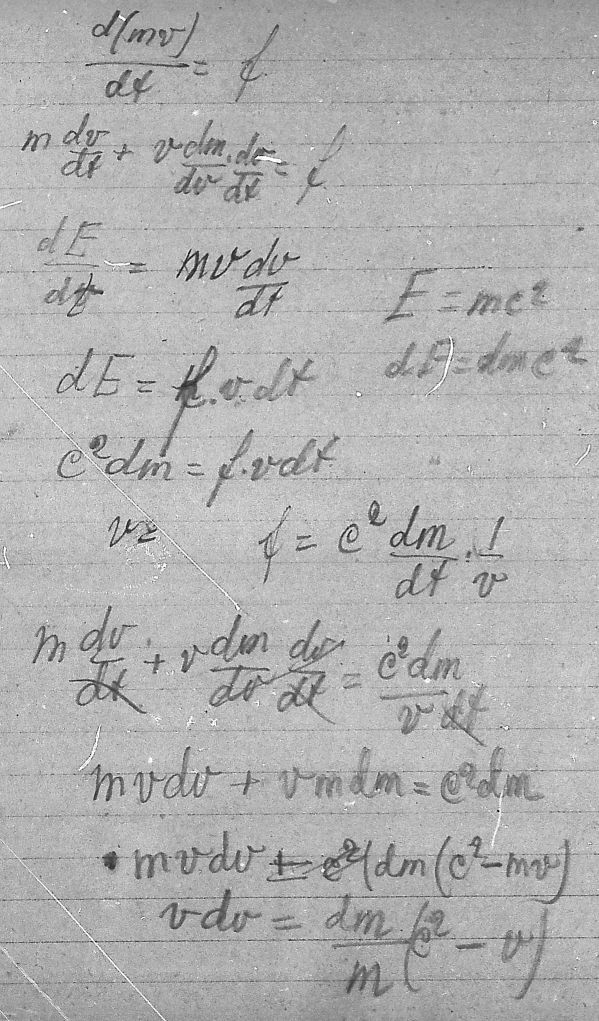 d(mv)/dt = f
m dv/dt + v dm/dv · dv/dt = f
dE/dt = mv dv/dt
E = mc²
dE = dmc²
dE = f.v.dt
c²dm = f.vdt
v= f = c² dm/dt · 1/v
m dv/dt + v dm/dv dv/dt = c²dm/v dt
mvdv + vmdm = c²dm
mvdv = dm(c²-mv)
vdv = dm/m (c² - v)